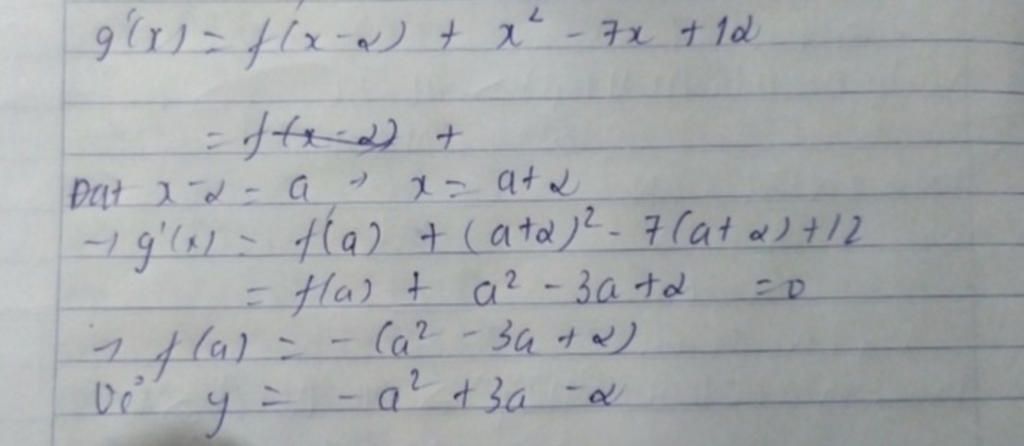 g'(x) = f(x-2) + x² - 7x + 12
= f(x-2) +
Đặt x-2 = a → x = a+2
→ g'(x) = f'(a) + (a+2)² - 7(a+2)+12
= f(a) + a² - 3a+2 = 0
→ f(a) = -(a² - 3a + 2)
Vẽ y = -a² + 3a - 2